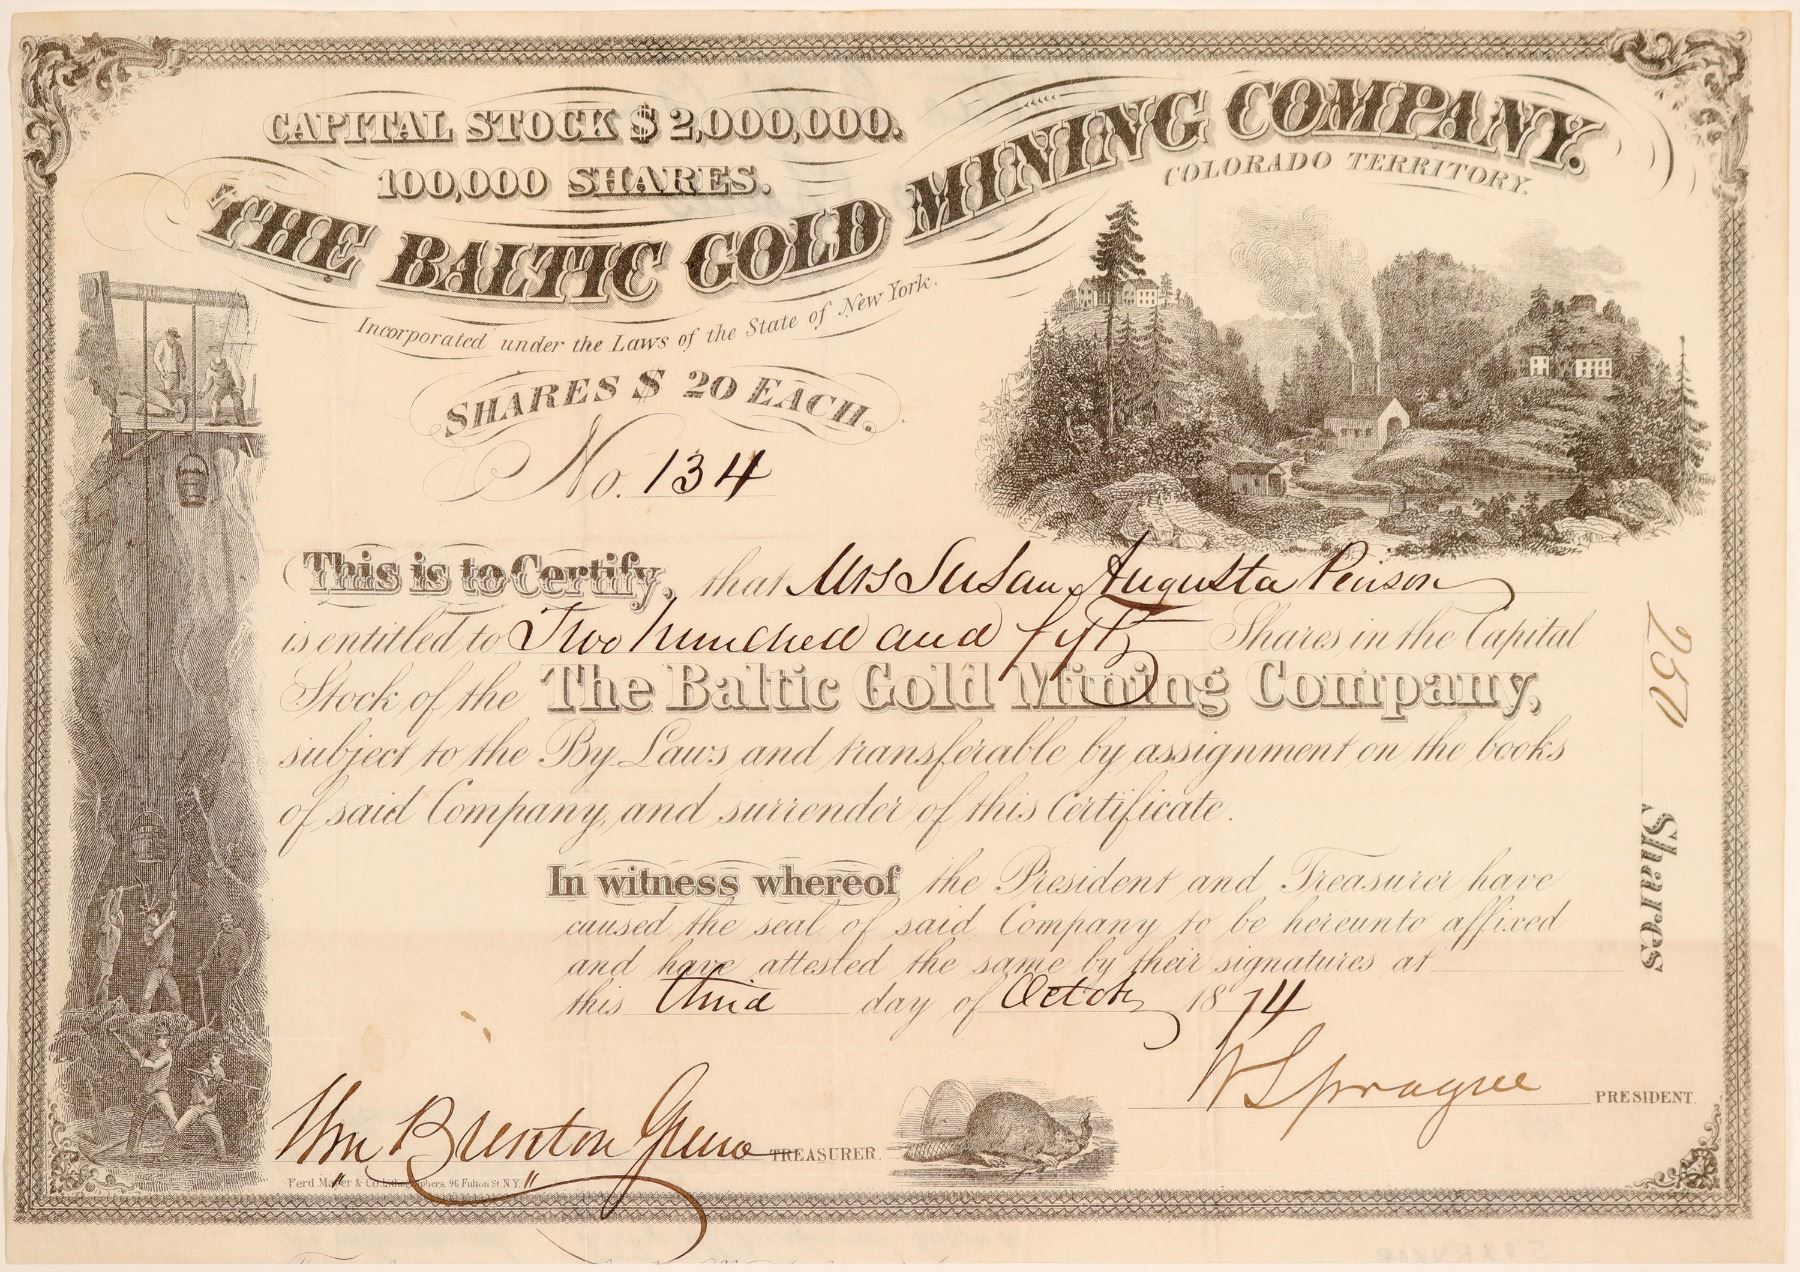 CAPITAL STOCK $2,000,000.
100,000 SHARES.
THE BALTIC GOLD MINING COMPANY.
COLORADO TERRITORY.
Incorporated under the Laws of the State of New York.
SHARES $ 20 EACH.
No. 134
This is to Certify, that Mrs Susan Augusta Penson
is entitled to Two hundred and fifty Shares in the Capital
Stock of the The Baltic Gold Mining Company,
subject to the By Laws and transferable by assignment on the books
of said Company, and surrender of this Certificate.
250 Shares
In witness whereof the President and Treasurer have
caused the seal of said Company to be hereunto affixed
and have attested the same by their signatures at
this third day of Octob 1874
W Sprague PRESIDENT.
Wm Brenton Greene TREASURER.
Ferd Mayer & Co. Lithographers, 96 Fulton St. N.Y.